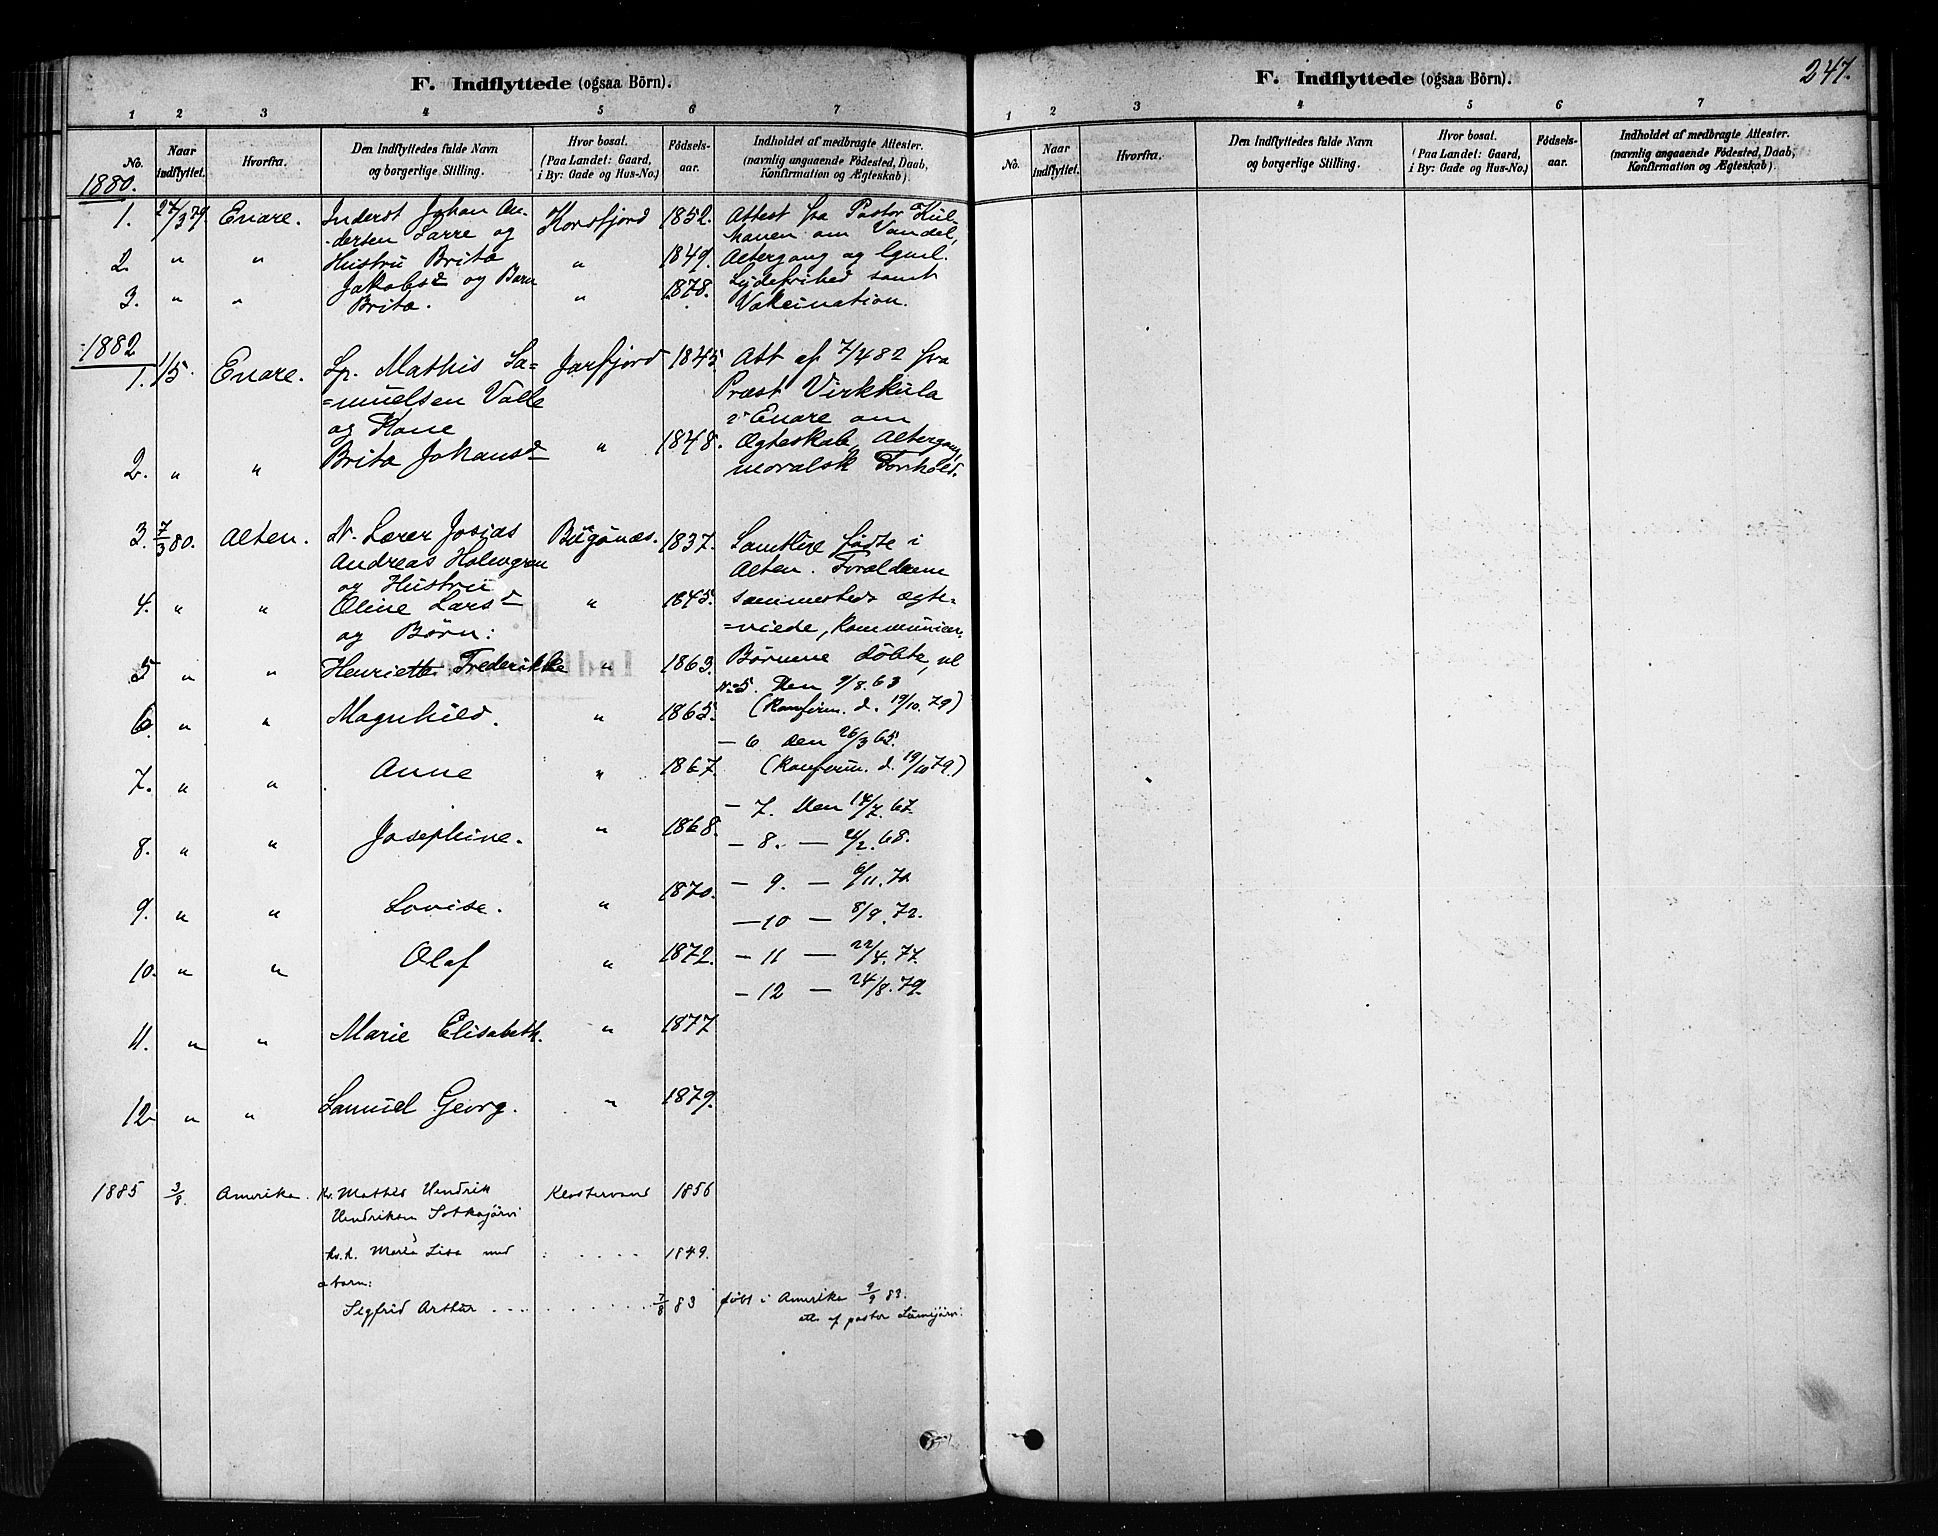 F. Indflyttede (ogsaa Börn).
1 2 3 4 5 6 7
No. Naar indflyttet. Hvorfra. Den Indflyttedes fulde Navn og borgerlige Stilling. Hvor bosat. (Paa Landet: Gaard, i By: Gade og Hus-No.) Födsels-aar. Indholdet af medbragte Attester. (navnlig angaaende Födested, Daab, Konfirmation og Ægteskab).
1880.
1. 24/3 79 Enare. Inderst Johan An- Korsfjord 1852. Attest fra Pastor
dersen Sarre og om Vandel,
2. " " Hustru Brita " 1849. Altergang og
Jakobsd og Barn Lydefrihed samt
3. " " Brita. " 1878. Vakcination.
1882
1. 1/5. Enare. Mathis Sa= Jarfjord 1845 Att af 7/4 82 fra
=muelsen Valle Præst Virkkula
og Kone i Enare om
2. " " Brita Johansd " 1848. Ægteskab, Altergang,
moralsk Forhold.
3. 7/3 80. Alten. N. Lærer Josias Bugönæs. 1837. Samtlige födte i
Andreas Holmgren Alten. Forældrene
og Hustru
4. " " Oline Larsd " 1845. sammesteds ægte=
og Börn: =viede, kommunicer.
5 " " Henriette Frederikke " 1863. Börnene döbte, nl
No 5. den 9/8. 63
6. " " Magnhild. " 1865. (Konfirm. d. 19/10. 79)
– 6 den 26/3 65.
7. " " Anne " 1867. (Konfirm. d. 19/10 79.)
– 7. den 14/7. 67.
8. " " Josephine. " 1868. – 8. –
9. " " Lovise. " 1870. – 9. – 6/11. 70
– 10 – 8/9. 72.
10. " " Olaf " 1872. – 11 – 22/4. 77.
– 12 – 24/8. 79.
11. " " Marie Elisabeth. " 1877
12. " " Samuel Georg. " 1879.
1885 3/8. Amerika. Kv. Mathis Hendrik Klostervand 1856
Hendriksen Sotkajärvi
kv. k. Maria Lisa med 1849.
barn:
Segfrid Arthur 7/8 83 födt i Amerika 83.
att. af pastor
F. Indflyttede (ogsaa Börn).
247.
1 2 3 4 5 6 7
No. Naar indflyttet. Hvorfra. Den Indflyttedes fulde Navn og borgerlige Stilling. Hvor bosat. (Paa Landet: Gaard, i By: Gade og Hus-No.) Födsels-aar. Indholdet af medbragte Attester. (navnlig angaaende Födested, Daab, Konfirmation og Ægteskab)